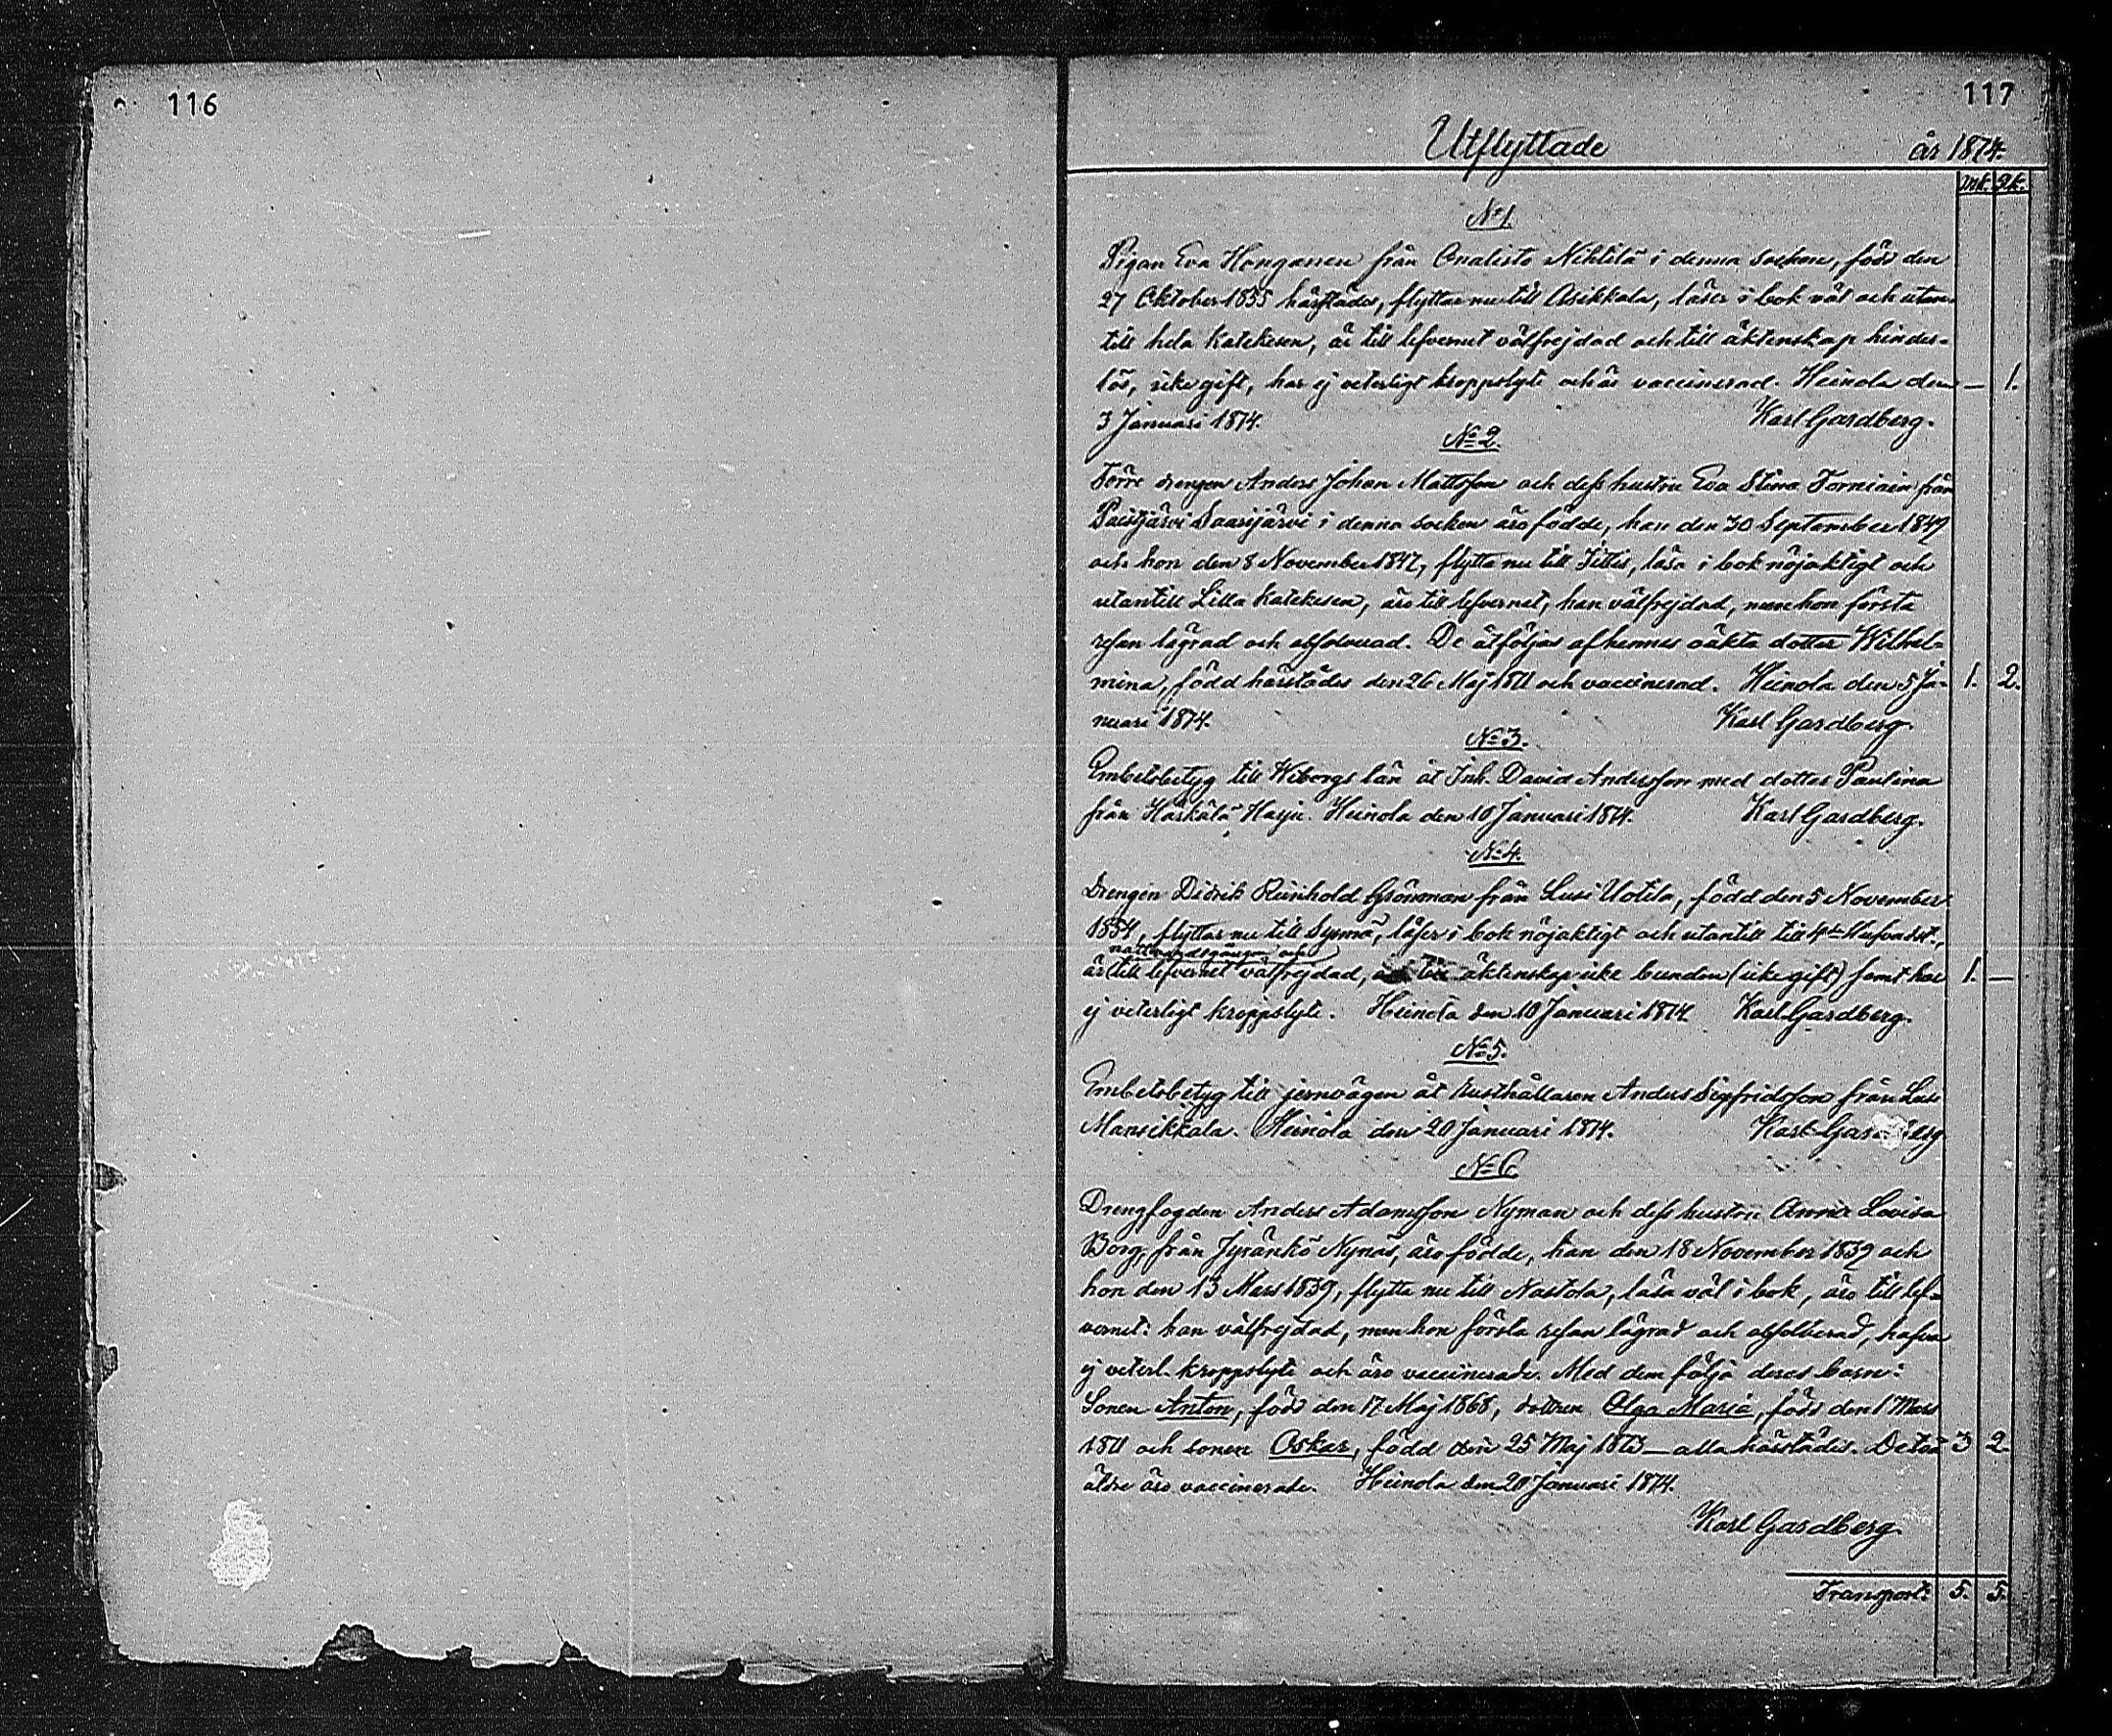 116
117
Utflyttade år 1874.
Mk. Qk.
No 1.
Pigan Eva Honganen från Onalisto Nihtilä i denna socken, född den
27 Oktober 1855 härstädes, flyttar nu till Asikkala, läser i bok väl och utan-
till hela Katekesen, är till lefvernet välfrejdad och till äktenskap hinders-
lös, icke gift, har ej veterligt kroppslyte och är vaccinerad. Heinola den — 1.
3 Januari 1874. Karl Gardberg.
No 2.
Förre drengen Anders Johan Mattsson och dess hustru Eva Stina Torniain från
Paistjärvi Saarijärvi i denna socken äro födde, han den 30 September 1849
och hon den 8 November 1847, flytta nu till Iittis, läsa i bok nöjaktigt och
utantill Lilla Katekesen, äro till lefvernet, han välfrejdad, men hon första
resan lägrad och absolverad. De åtföljas af hennes oäkta dotter Wilhel-
mina, född härstädes den 26 Maj 1871 och vaccinerad. Heinola den 5 Ja- 1. 2.
nuari 1874. Karl Gardberg.
No 3.
Embetsbetyg till Wiborgs län åt Inh. David Andersson med dotter Paulina
från Härkälä Harju. Heinola den 10 Januari 1874. Karl Gardberg.
No 4.
Drengen Didrik Reinhold Grönman från Lusi Uotila, född den 5 November
1854, flyttar nu till Sysmä, läser i bok nöjaktigt och utantill till 4de Hufvudst.,
nattvardsgången och
är till lefvernet välfrejdad, till äktenskap icke bunden (icke gift) samt har 1. —
ej veterligt kroppslyte. Heinola den 10 Januari 1874 Karl Gardberg.
No 5.
Embetsbetyg till jernvägen åt Rusthållaren Anders Sigfridsson från Lusi
Mansikkala. Heinola den 20 Januari 1874. Karl Gardberg
No 6
Drengfogden Anders Adamsson Nyman och dess hustru Anna Lovisa
Borg, från Jyränkö Nynäs, äro födde, han den 18 November 1839 och
hon den 13 Mars 1839, flytta nu till Nastola, läsa väl i bok, äro till lef-
vernet: han välfrejdad, men hon första resan lägrad och absolverad, hafva
ej veterl. kroppslyte och äro vaccinerade. Med dem följa deras barn:
Sonen Anton, född den 17 Maj 1868, dottren Olga Maria, född den 1 Mars
1871 och sonen Oskar, född den 25 Maj 1873 — alla härstädes. De två 3 2.
äldre äro vaccinerade. Heinola den 20 Januari 1874.
Karl Gardberg.
Transport: 5. 5.